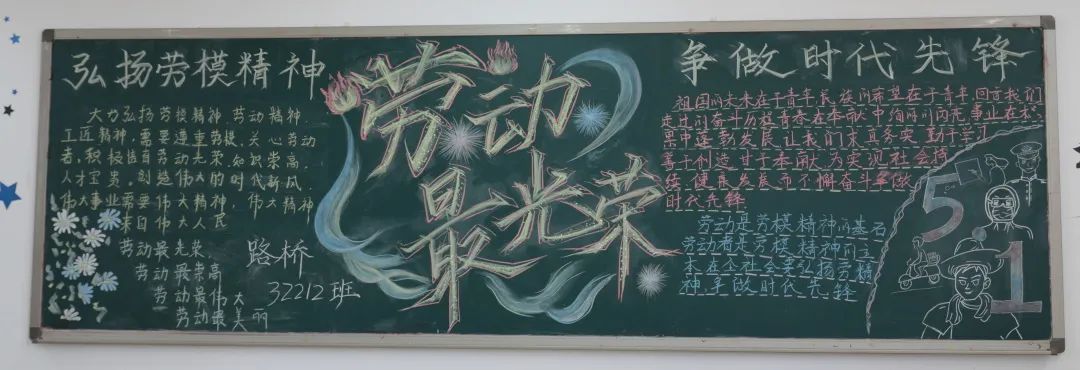 弘扬劳模精神
大力弘扬劳模精神、劳动精神、
工匠精神,需要尊重劳模、关心劳动
者,积极培育劳动光荣、知识崇高、
人才宝贵、创造伟大的时代新风.
伟大事业需要伟大精神,伟大精神
来自伟大人民
劳动最光荣、
劳动最崇高
劳动最伟大
劳动最美丽
路桥
32212班
劳动
最光荣
争做时代先锋
祖国的未来在于青年,民族的希望在于青年,回首我们
走过的奋斗历程,青春在奉献中闪闪闪光,事业在
果中蓬勃发展,让我们求真务实,勤于学习
善于创造,甘于奉献,为实现社会持
续、健康发展而不懈奋斗争做
时代先锋
劳动是劳模精神的基石
劳动者是劳模精神的主
在全社会要弘扬劳模精
神,争做时代先锋
51